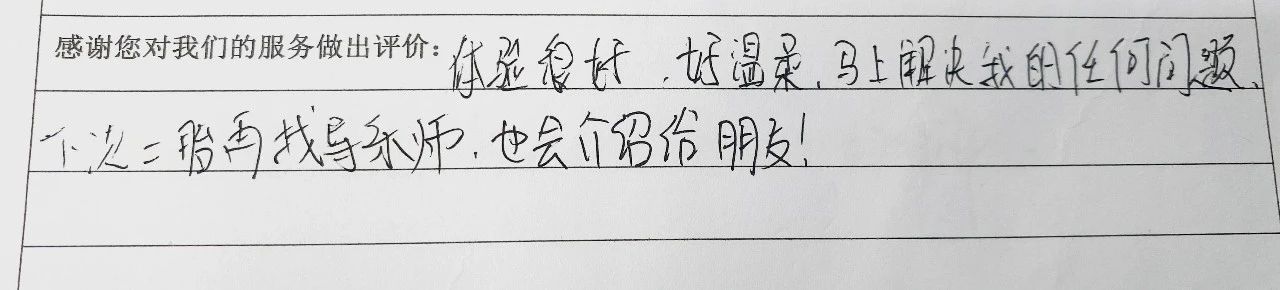 感谢您对我们的服务做出评价：体验很好，好温柔，马上解决我的任何问题，
下次二胎再找导乐师，也会介绍给朋友！